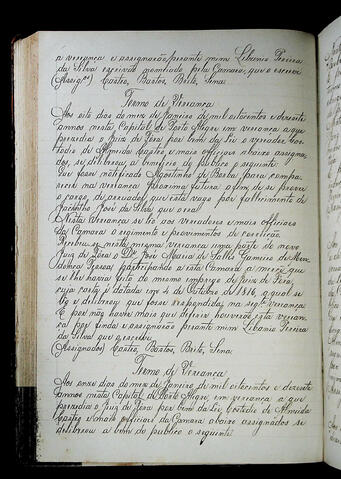 a veriança e assignarão perante mim Libanio Pereira
da Silva escrivão nomeado pela Camara que o escrevi
(Assig.os) Castro, Bastos, Brito, Sena.
Termo de Veriança
Aos oito dias do mez de Janeiro de mil oitocentos e dezesete
annos nesta Capital de Porto Alegre em veriança a que
presidio o Juiz de Fora por bem da Lei o vereador Cus-
todio de Almeida Castro e mais officiaes abaixo assigna-
dos, se deliberou a beneficio do publico o seguinte
Que fosse notificado Agostinho de Borba para compa-
recer na veriança proxima futura afim de se prover
o cargo de que está vago por fallecimento de
José da Silva que o era
Nesta veriança se lio aos vereadores e mais officiaes
da Camara o regimento e provimentos de correição
Recebeu-se nesta mesma veriança uma parte do novo
Juiz de Fora o Dr. José Maria de Salles Gameiro de Men-
donça Pessoa participando a esta Camara a mercê que
se lhe havia feito do mesmo emprego de Juiz de Fora,
cuja carta é datada em 4 de Outubro de 1816, a qual se
lio e deliberou que fosse respondida na seg.te veriança
E por não haver mais que deferir houverão esta verian-
ça por finda e assignarão perante mim Libanio Pereira
da Silva que o escrevi
(Assignados) Castro, Bastos, Brito, Sena.
Termo de Veriança
Aos onze dias do mez de Janeiro de mil oitocentos e dezesete
annos nesta Capital de Porto Alegre, em veriança a que
presidio o Juiz de Fora por bem da Lei Custodio de Almeida
Castro e mais officiaes da Camara abaixo assignados se
deliberou a bem do publico o seguinte